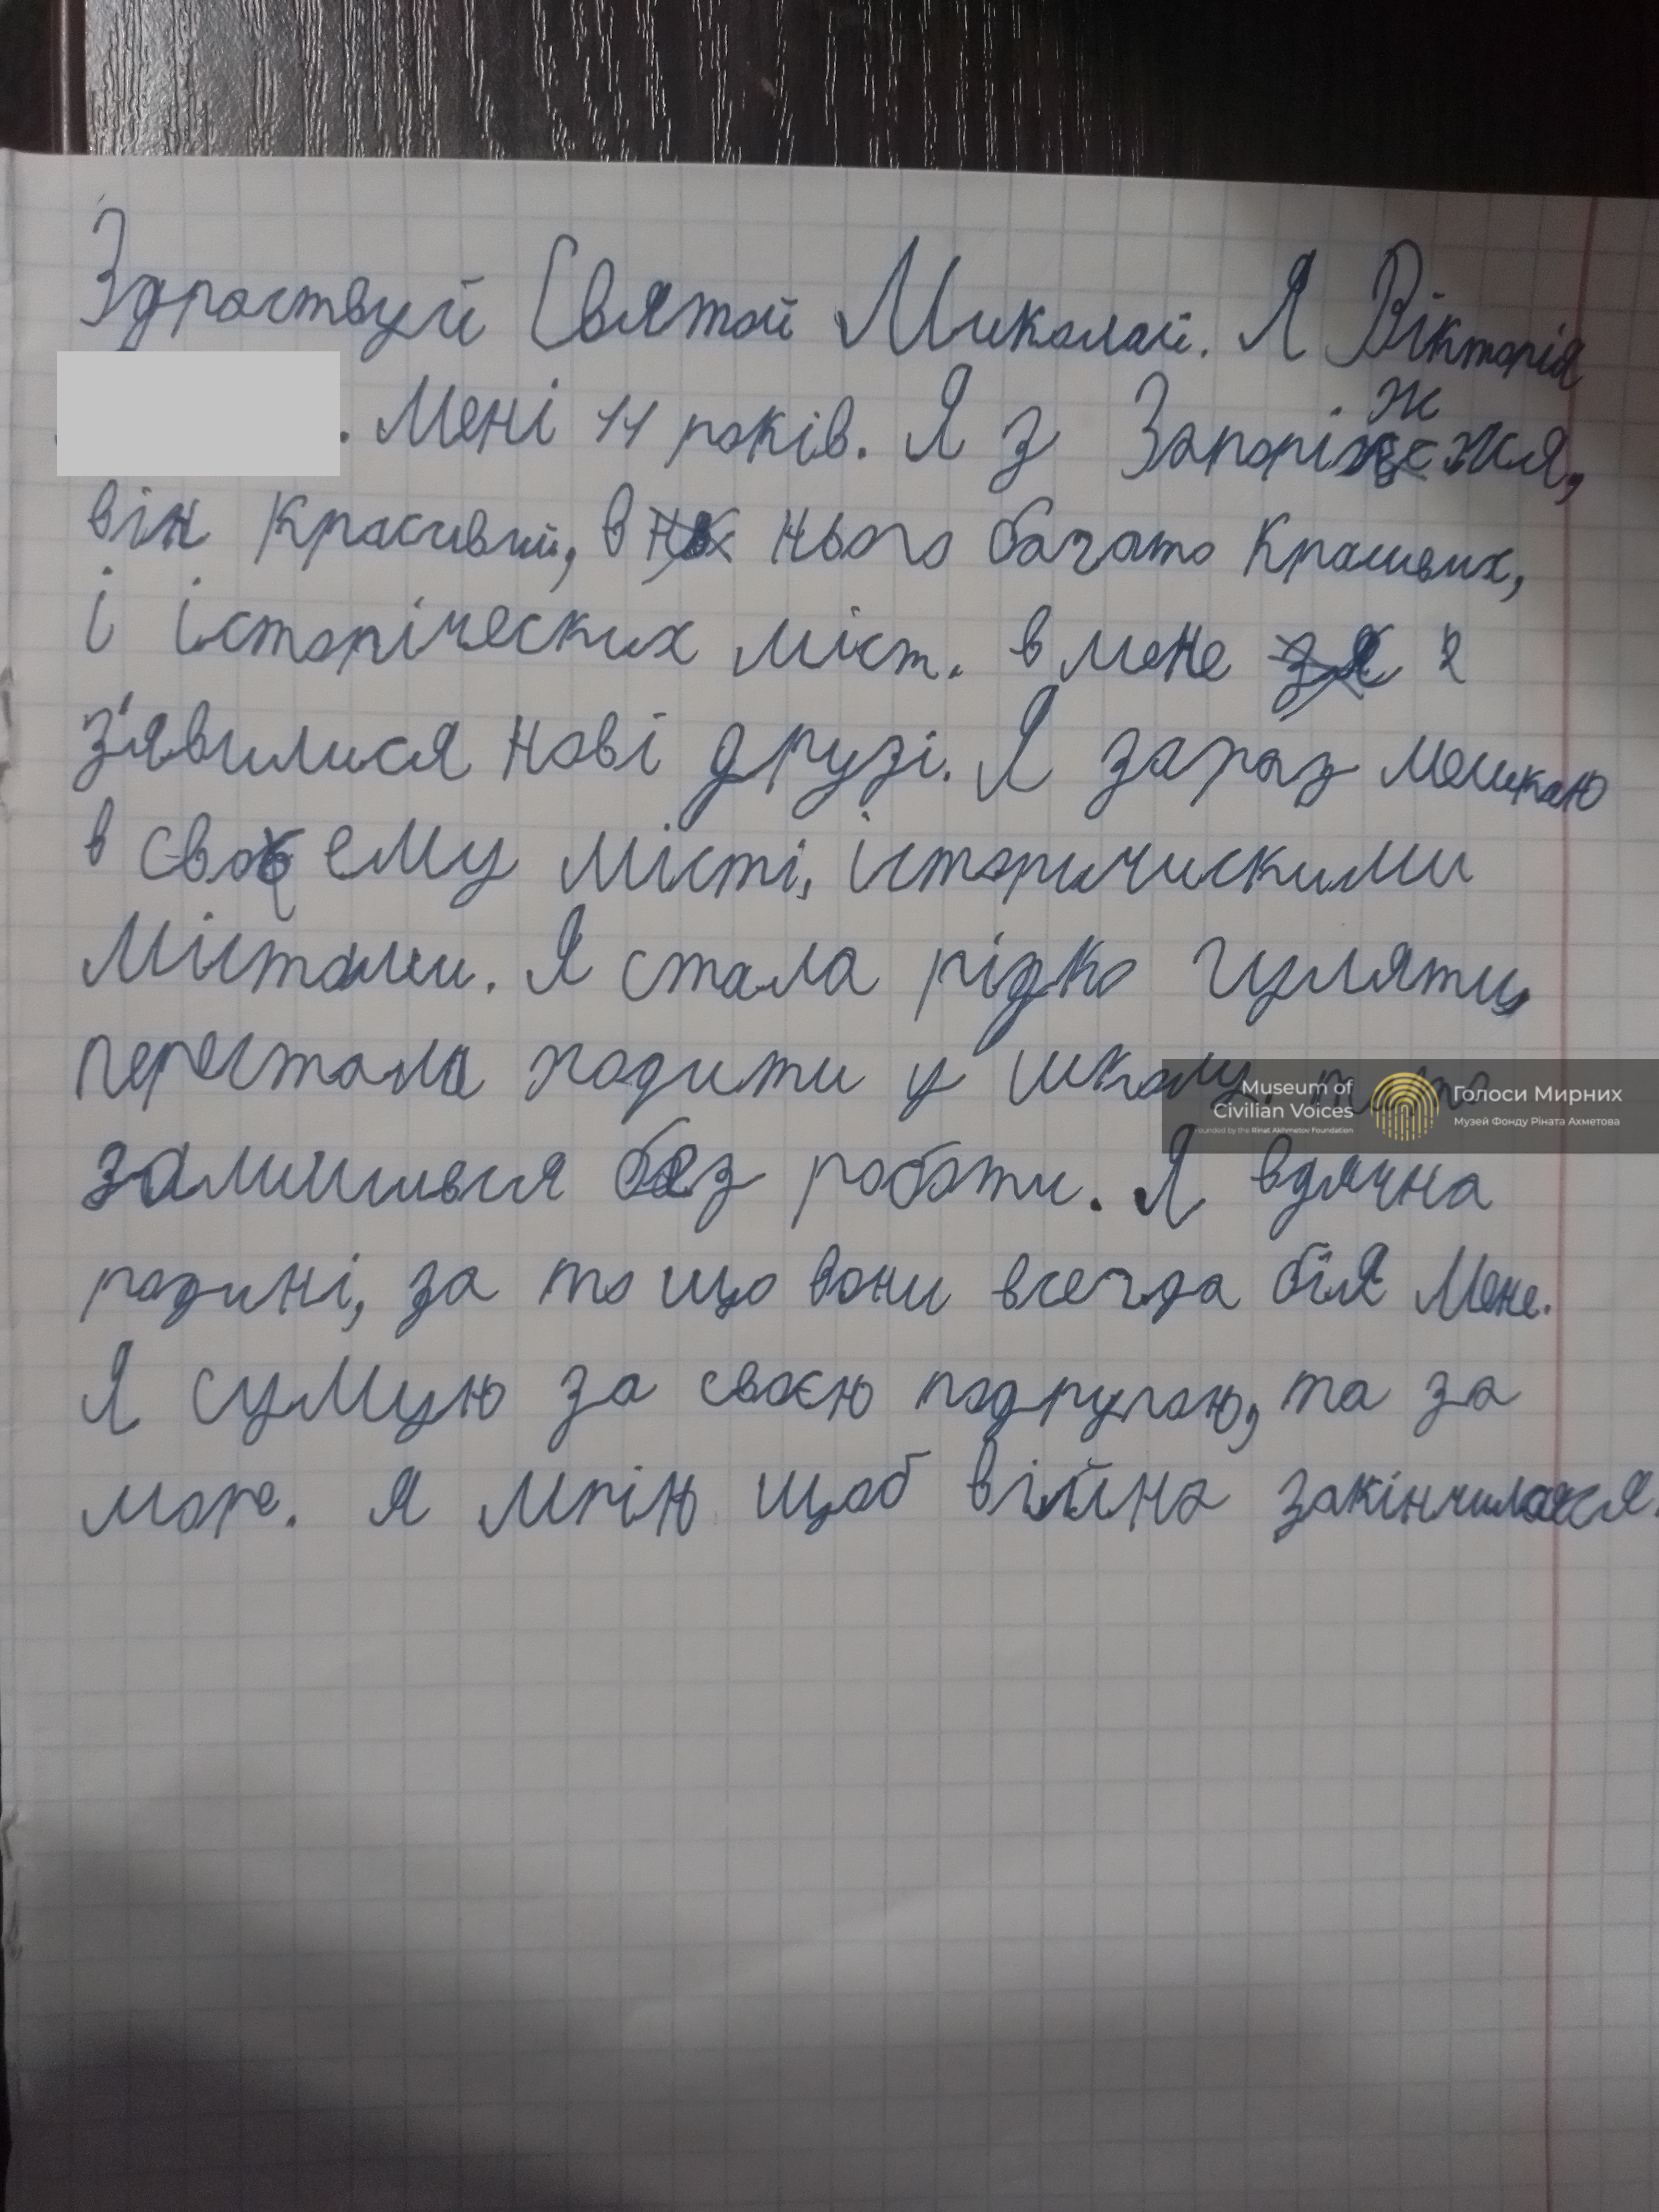 Здраствуй Святой Миколай. Я Вікторія
. Мені 11 років. Я з Запоріжжя,
він красивий, в нього багато красивих,
і історіческих міст. в мене
з'явилися нові друзі. Я зараз мешкаю
в своему місті, історичискими
містами. Я стала рідко гуляти,
перестала ходити у школу,
залишився без роботи. Я вдячна
родині, за то що вони всегда біля мене.
Я сумую за своєю подругою, та за
море. Я мрію щоб війна закінчилася.
Museum of Civilian Voices
Founded by the Rinat Akhmetov Foundation
Голоси Мирних
Музей Фонду Ріната Ахметова